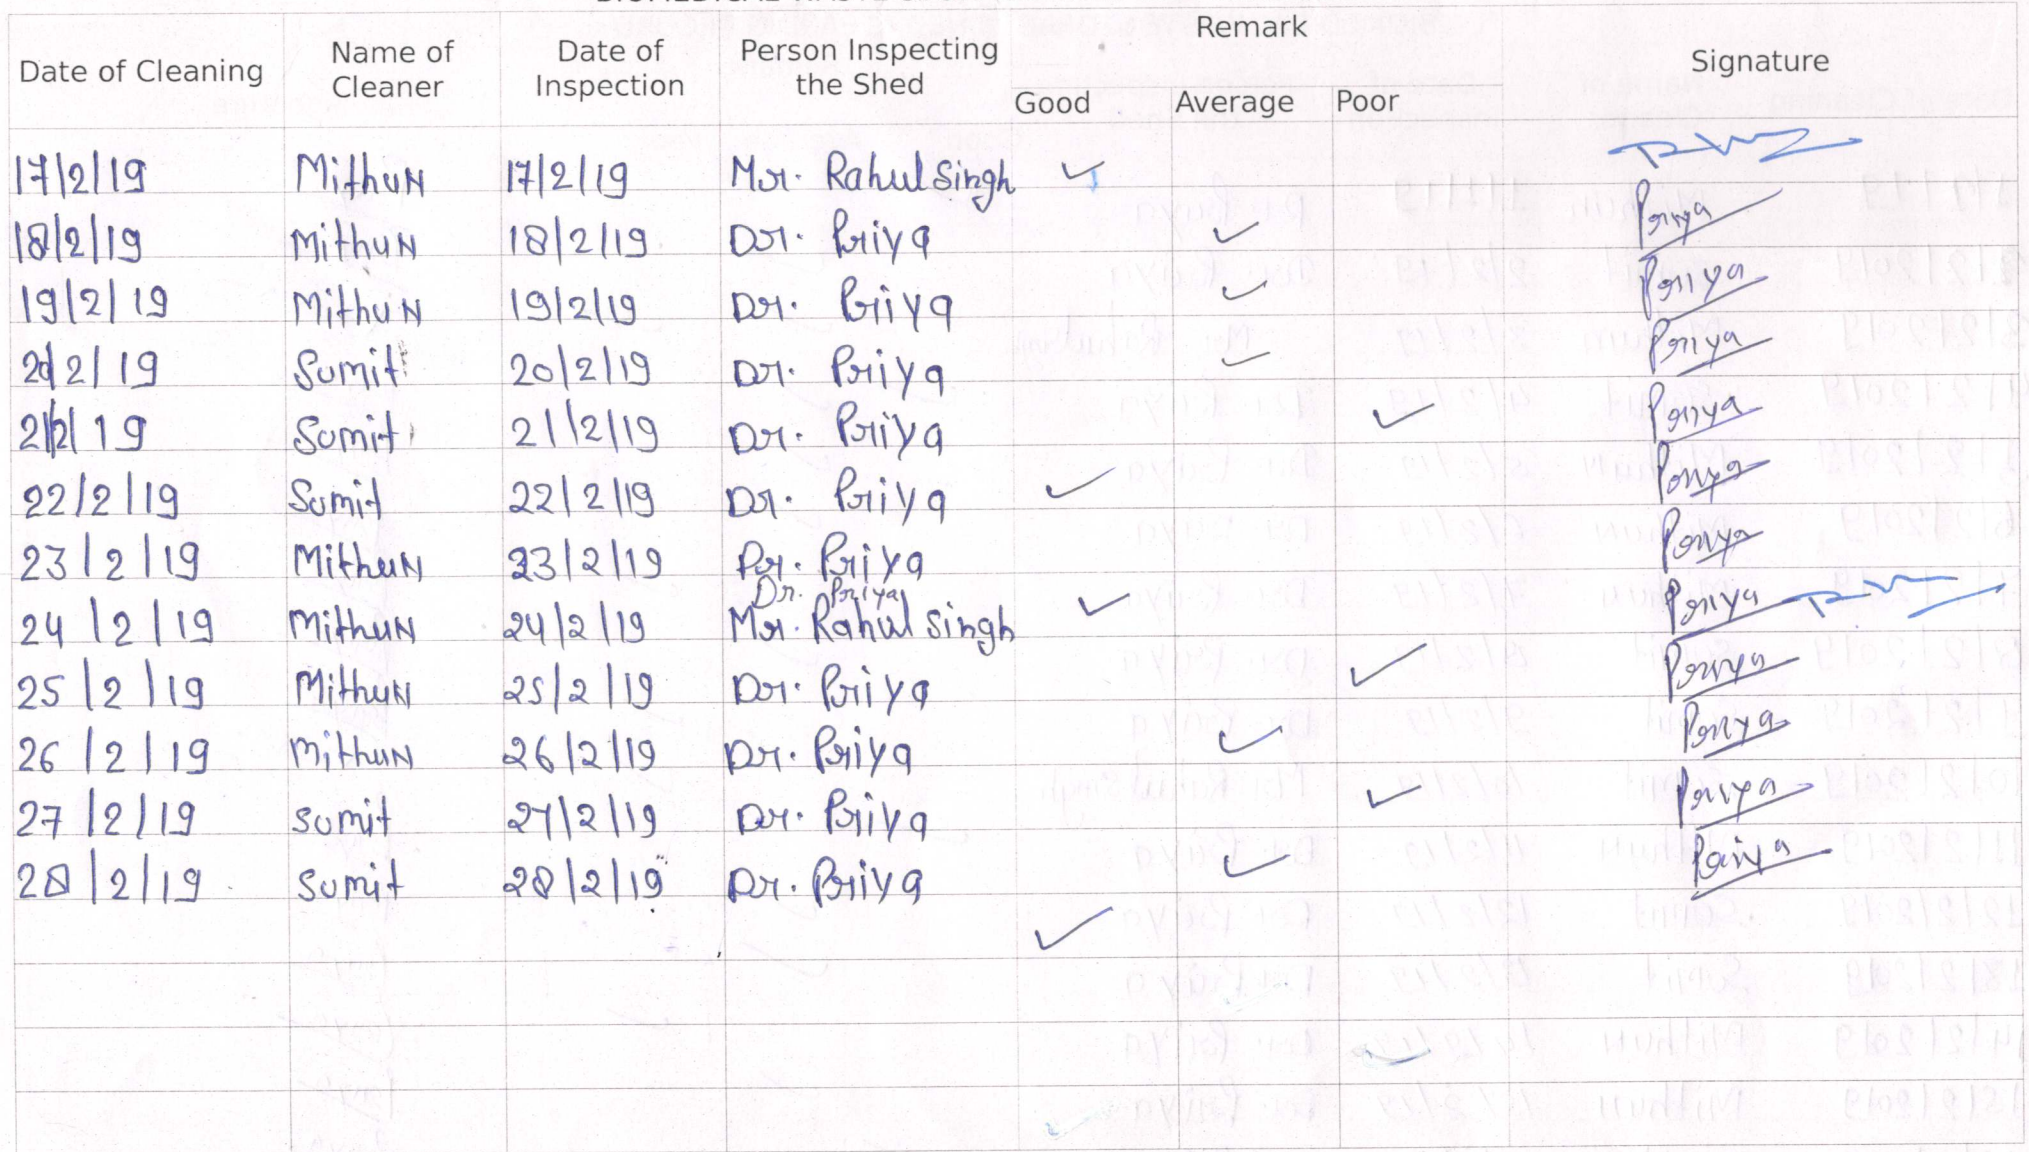 Remark
Date of Cleaning Name of Cleaner Date of Inspection Person Inspecting the Shed Good Average Poor Signature
17/2/19 Mithun 17/2/19 Mr. Rahul Singh ✓
18/2/19 Mithun 18/2/19 Dr. Priya ✓ Priya
19/2/19 Mithun 19/2/19 Dr. Priya ✓ Priya
20/2/19 Sumit 20/2/19 Dr. Priya ✓ Priya
21/2/19 Sumit 21/2/19 Dr. Priya ✓ Priya
22/2/19 Sumit 22/2/19 Dr. Priya ✓ Priya
23/2/19 Mithun 23/2/19 Dr. Priya Priya
Dr. Priya
24/2/19 Mithun 24/2/19 Mr. Rahul Singh ✓ Priya
25/2/19 Mithun 25/2/19 Dr. Priya ✓ Priya
26/2/19 Mithun 26/2/19 Dr. Priya ✓ Priya
27/2/19 Sumit 27/2/19 Dr. Priya ✓ Priya
28/2/19 Sumit 28/2/19 Dr. Priya ✓ Priya
✓